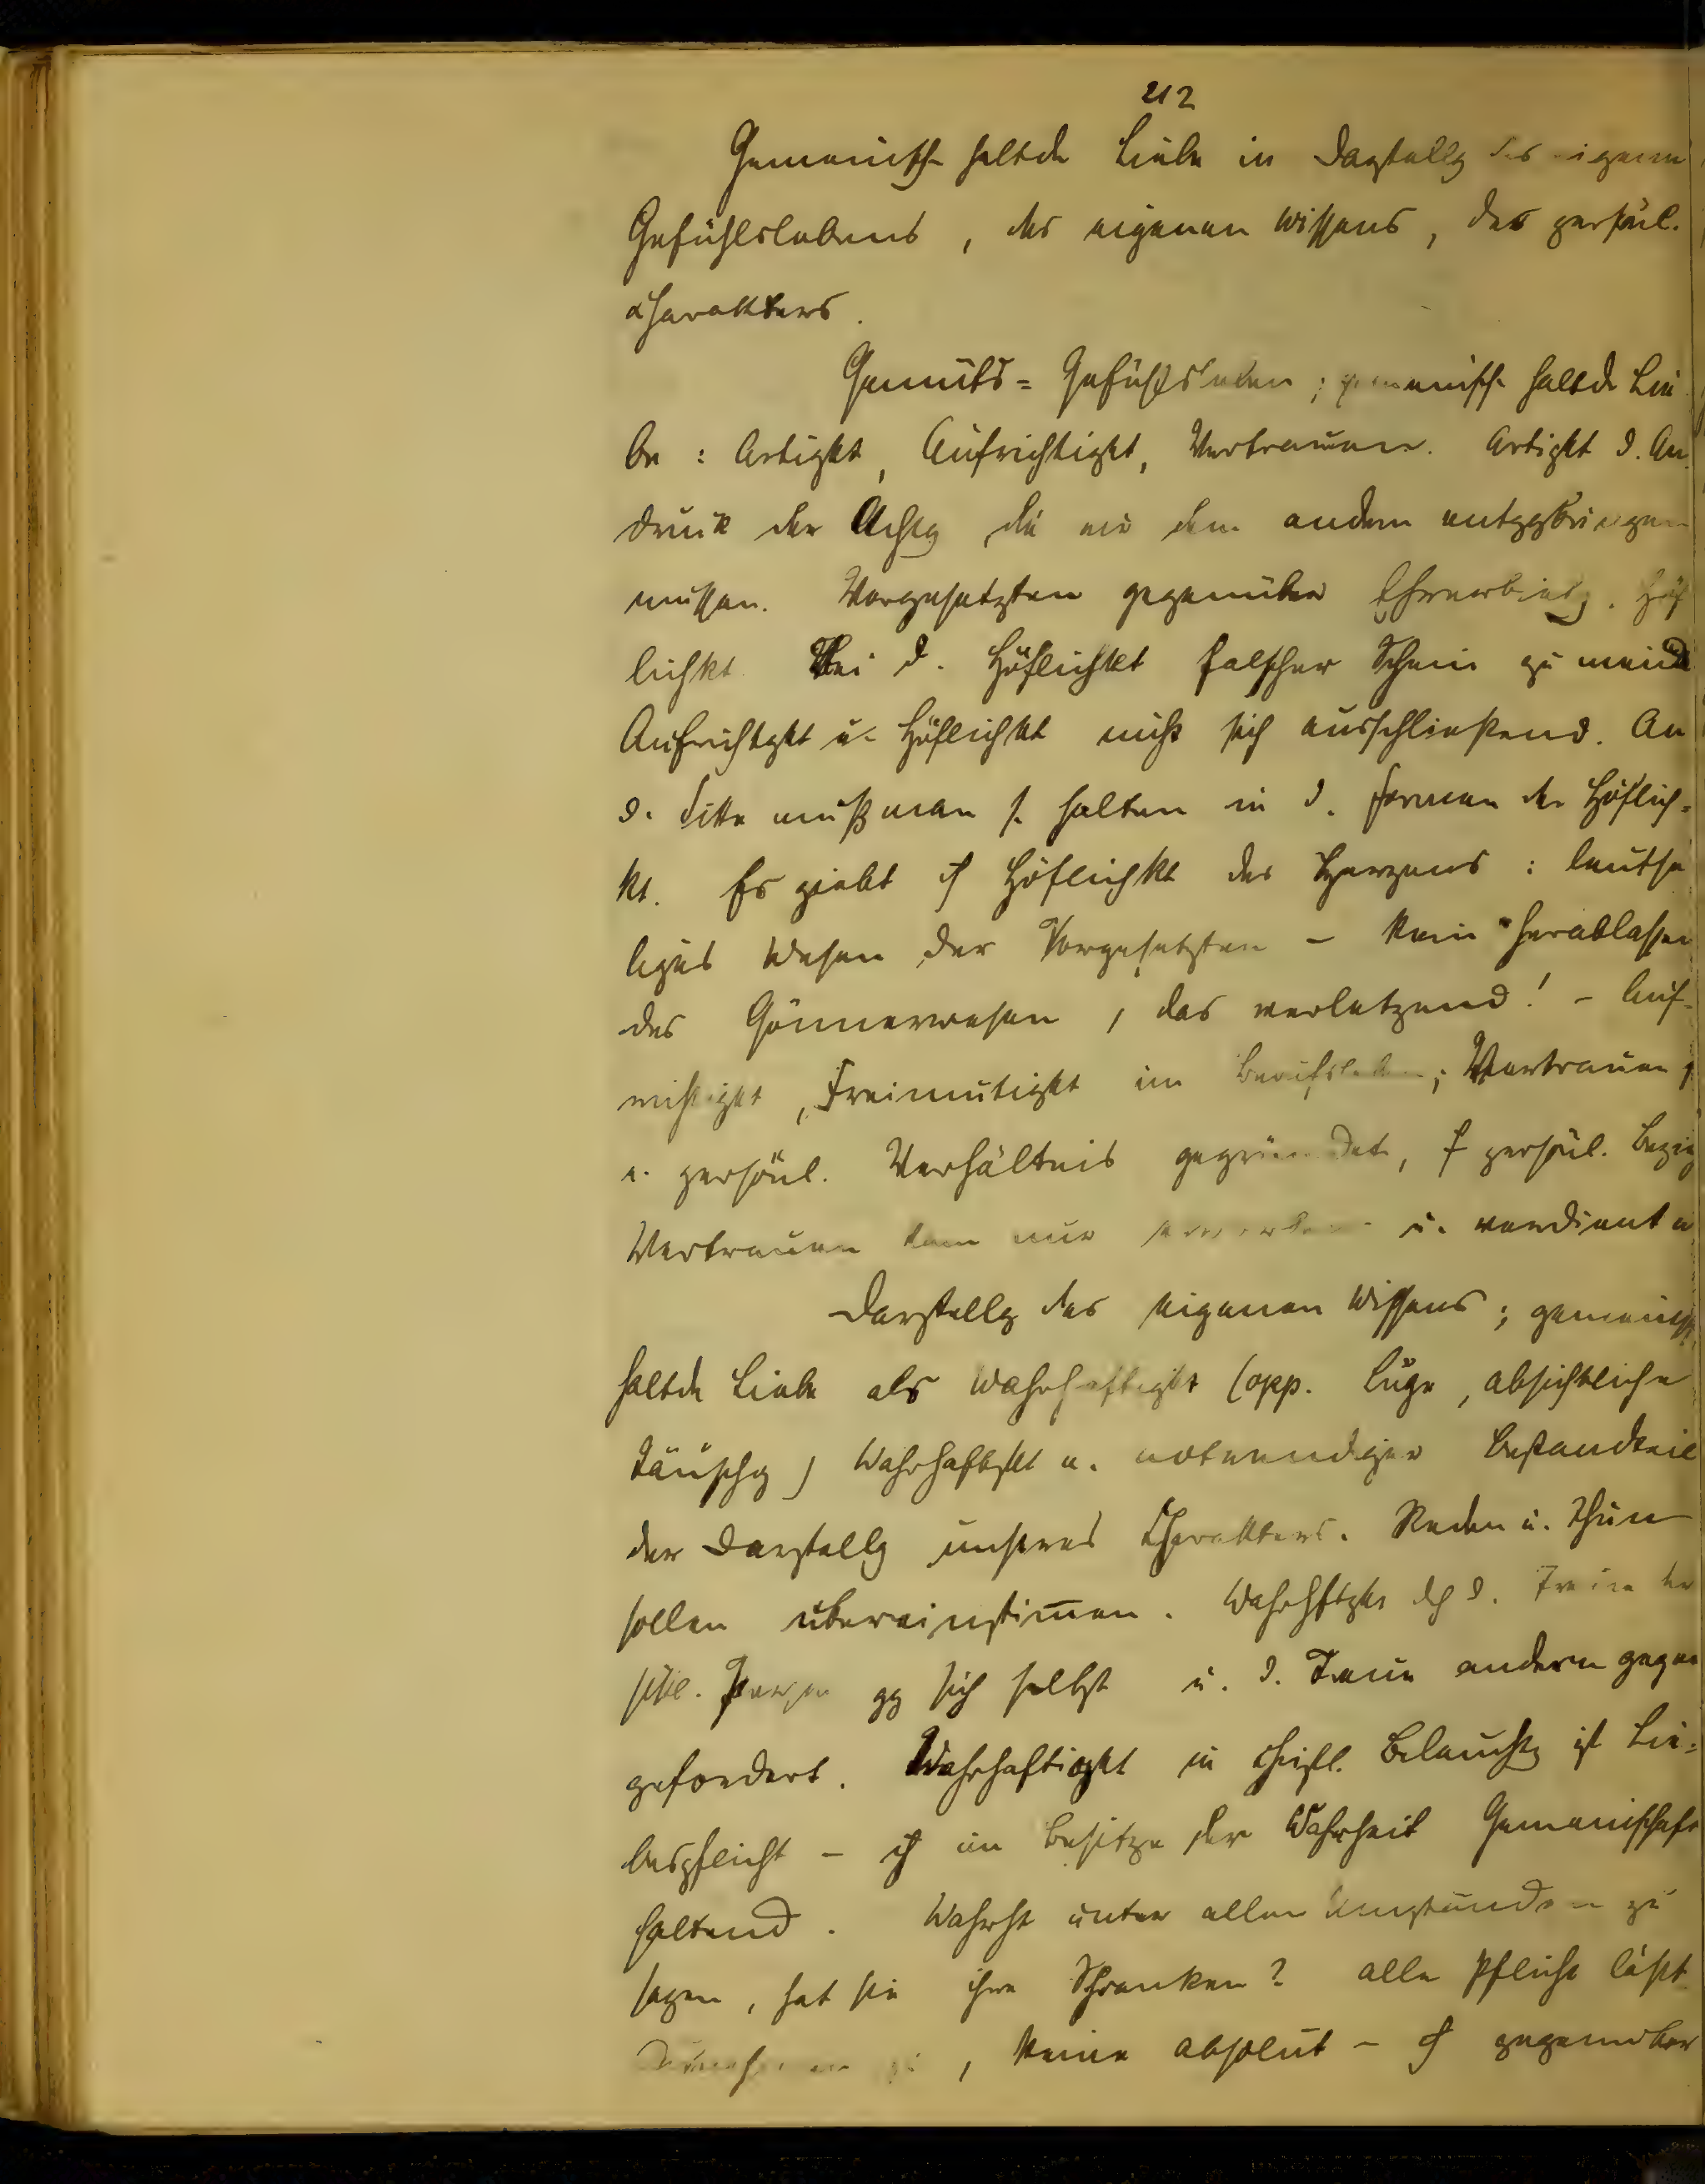 212
Gemeinsch haltde Liebe in Darstellg des eigenen
Gefühlslebens, des eigenen Wissens, des persönl.
Charakters.
Gemüts= Gefühlsleben; gemeinsch haltde Lie
be: Artigkt, Aufrichtigkt, Vertrauen. Artigkt d. Au
druck der Achtg, die wir dem andern entggbringen
müssen. Vorgesetzten gegenüber Ehrerbietg. Höf
lichkt. Bei d. Höflichkt falscher Schein zu meid
Aufrichtgkt u. Höflichkt nicht sich ausschließend. An
d. Sitte muß man s. halten in d. Formen der Höflich=
kt. Es giebt Höflichkt des Herzens: leutse
liges Wesen der Vorgesetzten – kein herablassen
des Gönnerwesen, das verletzend! – Auf
richtigkt, Freimütigkt im Berufsleben; Vertrauen
e. persönl. Verhältnis gegründet, persönl. Bezieg
Vertrauen kann nur erworben u. verdient w
Darstellg des eigenen Wissens; gemeinsch
haltde Liebe als Wahrhaftigkt (opp. Lüge, absichtliche
Täuschg) Wahrhaftgkt e. notwendiger Bestandteil
der Darstellg unseres Charakters. Reden u. Thun
sollen übereinstimen. Wahrhftgkt d. Treue der
sittl. Person gg sich selbst u. d. Treue andern gegen
gefordert. Wahrhaftigkt in christl. Beleuchtg ist Lie=
bespflicht – im Besitze der Wahrheit Gemeinschaft
haltend. Wahrht unter allen Umständen zu
sagen, hat sie ihre Schranken? alle Pflicht läßt
, keine absolut – gegenüber